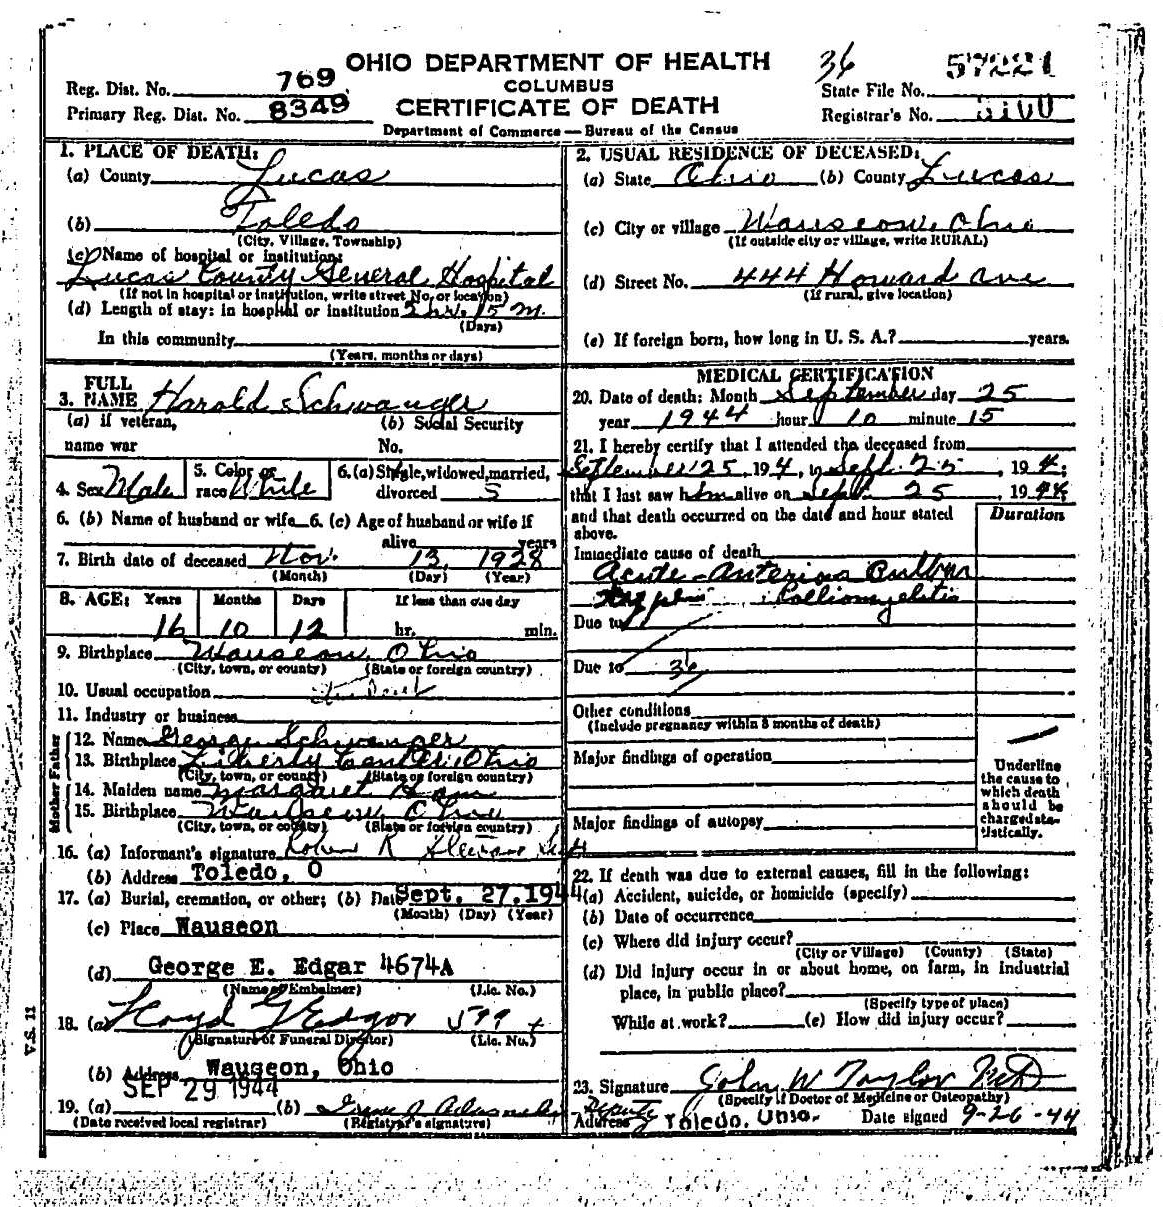 OHIO DEPARTMENT OF HEALTH
COLUMBUS
CERTIFICATE OF DEATH
Department of Commerce — Bureau of the Census
Reg. Dist. No. 769
Primary Reg. Dist. No. 8349
36
State File No. 57221
Registrar's No. 3100
1. PLACE OF DEATH:
(a) County Lucas
(b) Toledo
(City, Village, Township)
(c) Name of hospital or institution:
Lucas County General Hospital
(If not in hospital or institution, write street No. or location)
(d) Length of stay: in hospital or institution 2 hr. 15 m.
(Days)
In this community
(Years, months or days)
3. FULL NAME Harold Schwanger
(a) If veteran, name war
(b) Social Security No.
4. Sex Male
5. Color or race White
6. (a) Single, widowed, married, divorced S
6. (b) Name of husband or wife
6. (c) Age of husband or wife if alive years
7. Birth date of deceased Nov. 13, 1928
(Month) (Day) (Year)
8. AGE: Years Months Days If less than one day
16 10 12 hr. min.
9. Birthplace Wauseon, Ohio
(City, town, or county) (State or foreign country)
10. Usual occupation Student
11. Industry or business
Father
12. Name George Schwanger
13. Birthplace Liberty Center, Ohio
(City, town, or county) (State or foreign country)
Mother
14. Maiden name Margaret Ham
15. Birthplace Wauseon Ohio
(City, town, or county) (State or foreign country)
16. (a) Informant's signature Robert R
(b) Address Toledo, O
17. (a) Burial, cremation, or other; (b) Date Sept. 27, 1944
(Month) (Day) (Year)
(c) Place Wauseon
(d) George E. Edgar 4674A
(Name of Embalmer) (Lic. No.)
18. (a) Lloyd G Edgar
(Signature of Funeral Director) (Lic. No.)
(b) Address Wauseon, Ohio
SEP 29 1944
19. (a) (b)
(Date received local registrar) (Registrar's signature)
Deputy
V.S. 11
2. USUAL RESIDENCE OF DECEASED:
(a) State Ohio (b) County Lucas
(c) City or village Wauseon, Ohio
(If outside city or village, write RURAL)
(d) Street No. 444 Howard Ave
(If rural, give location)
(e) If foreign born, how long in U. S. A.? years.
MEDICAL CERTIFICATION
20. Date of death: Month September day 25
year 1944 hour 10 minute 15
21. I hereby certify that I attended the deceased from
September 25, 194, to Sept. 25, 194;
that I last saw him alive on Sept. 25, 1944
and that death occurred on the date and hour stated above.
Duration
Immediate cause of death
Acute Anterior Bulbar
Poliomyelitis
Due to
Due to 36
Other conditions
(Include pregnancy within 3 months of death)
Major findings of operation
Major findings of autopsy
Underline the cause to which death should be charged statistically.
22. If death was due to external causes, fill in the following:
(a) Accident, suicide, or homicide (specify)
(b) Date of occurrence
(c) Where did injury occur?
(City or Village) (County) (State)
(d) Did injury occur in or about home, on farm, in industrial place, in public place?
(Specify type of place)
While at work? (e) How did injury occur?
23. Signature John W Taylor M.D.
(Specify if Doctor of Medicine or Osteopathy)
Address Toledo, Ohio. Date signed 9-26-44